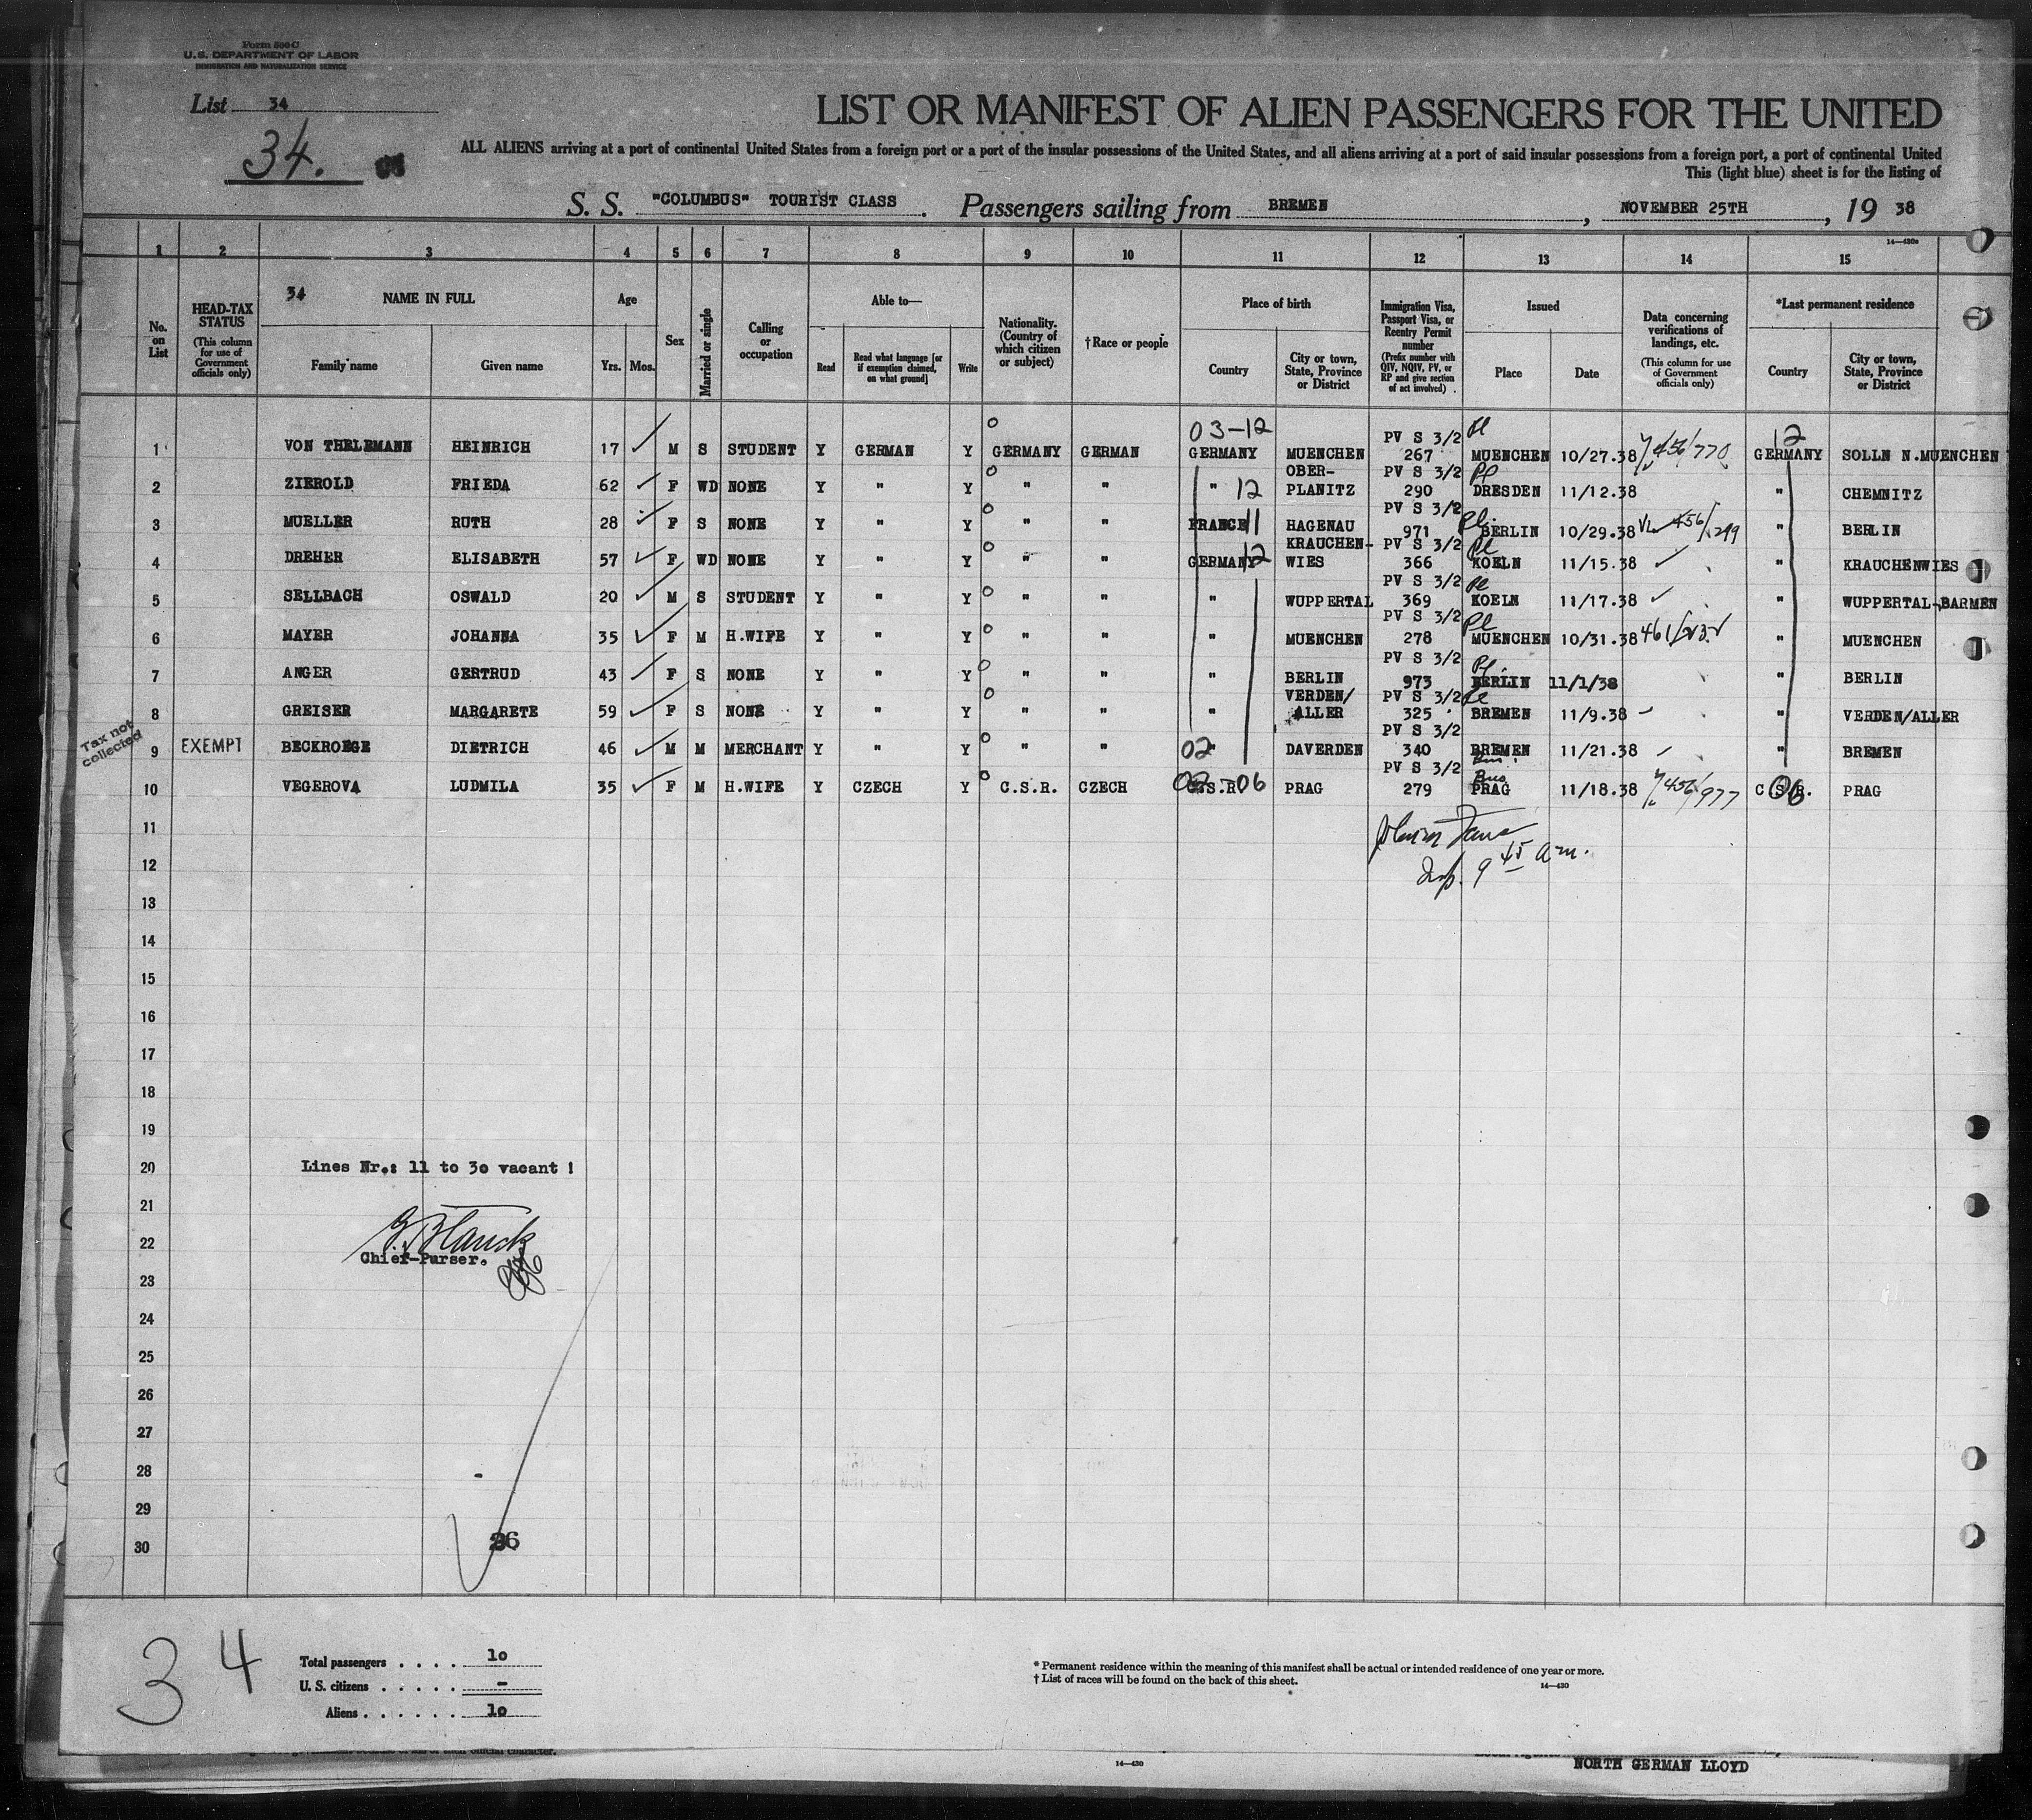 Form 500-C
U.S. DEPARTMENT OF LABOR
IMMIGRATION AND NATURALIZATION SERVICE
List 34
34.
LIST OR MANIFEST OF ALIEN PASSENGERS FOR THE UNITED
ALL ALIENS arriving at a port of continental United States from a foreign port or a port of the insular possessions of the United States, and all aliens arriving at a port of said insular possessions from a foreign port, a port of continental United
This (light blue) sheet is for the listing of
S. S. "COLUMBUS" TOURIST CLASS. Passengers sailing from BREMEN, NOVEMBER 25TH, 19 38
14—430a
1 2 3 4 5 6 7 8 9 10 11 12 13 14 15
No. on List
HEAD-TAX STATUS
(This column for use of Government officials only)
34 NAME IN FULL
Family name Given name
Age
Yrs. Mos.
Sex
Married or single
Calling or occupation
Able to—
Read
Read what language [or if exemption claimed, on what ground]
Write
Nationality. (Country of which citizen or subject)
†Race or people
Place of birth
Country
City or town, State, Province or District
Immigration Visa, Passport Visa, or Reentry Permit number
(Prefix number with QIV, NQIV, PV, or RP and give section of act involved)
Issued
Place Date
Data concerning verifications of landings, etc.
(This column for use of Government officials only)
*Last permanent residence
Country
City or town, State, Province or District
03-12 12
1 VON THELEMANN HEINRICH 17 M S STUDENT Y GERMAN Y GERMANY GERMAN GERMANY MUENCHEN PV S 3/2 267 MUENCHEN 10/27.38 456/770 GERMANY SOLLN N.MUENCHEN
2 ZIEROLD FRIEDA 62 F WD NONE Y " Y " " " 12 OBER-PLANITZ PV S 3/2 290 DRESDEN 11/12.38 " CHEMNITZ
3 MUELLER RUTH 28 F S NONE Y " Y " " FRANCE 11 HAGENAU PV S 3/2 971 BERLIN 10/29.38 456/299 " BERLIN
4 DREHER ELISABETH 57 F WD NONE Y " Y " " GERMANY 12 KRAUCHEN-WIES PV S 3/2 366 KOELN 11/15.38 " KRAUCHENWIES
5 SELLBACH OSWALD 20 M S STUDENT Y " Y " " " WUPPERTAL PV S 3/2 369 KOELN 11/17.38 " WUPPERTAL-BARMEN
6 MAYER JOHANNA 35 F M H.WIFE Y " Y " " " MUENCHEN PV S 3/2 278 MUENCHEN 10/31.38 " MUENCHEN
7 ANGER GERTRUD 43 F S NONE Y " Y " " " BERLIN PV S 3/2 973 BERLIN 11/1/38 " BERLIN
8 GREISER MARGARETE 59 F S NONE Y " Y " " " VERDEN/ALLER PV S 3/2 325 BREMEN 11/9.38 " VERDEN/ALLER
Tax not collected
9 EXEMPT BECKROEGE DIETRICH 46 M M MERCHANT Y " Y " " 02 " DAVERDEN PV S 3/2 340 BREMEN 11/21.38 " BREMEN
10 VEGEROVA LUDMILA 35 F M H.WIFE Y CZECH Y C.S.R. CZECH C.S.R 06 PRAG PV S 3/2 279 PRAG 11/18.38 456/977 C.S.R. 06 PRAG
11
Insp. 9 45 a.m.
12
13
14
15
16
17
18
19
20 Lines Nr.: 11 to 30 vacant !
21
22
Chief-Purser.
23
24
25
26
27
28
29
30
34
Total passengers . . . . 10
U. S. citizens . . . . . -
Aliens . . . . . . 10
* Permanent residence within the meaning of this manifest shall be actual or intended residence of one year or more.
† List of races will be found on the back of this sheet.
14—430
14—430
NORTH GERMAN LLOYD